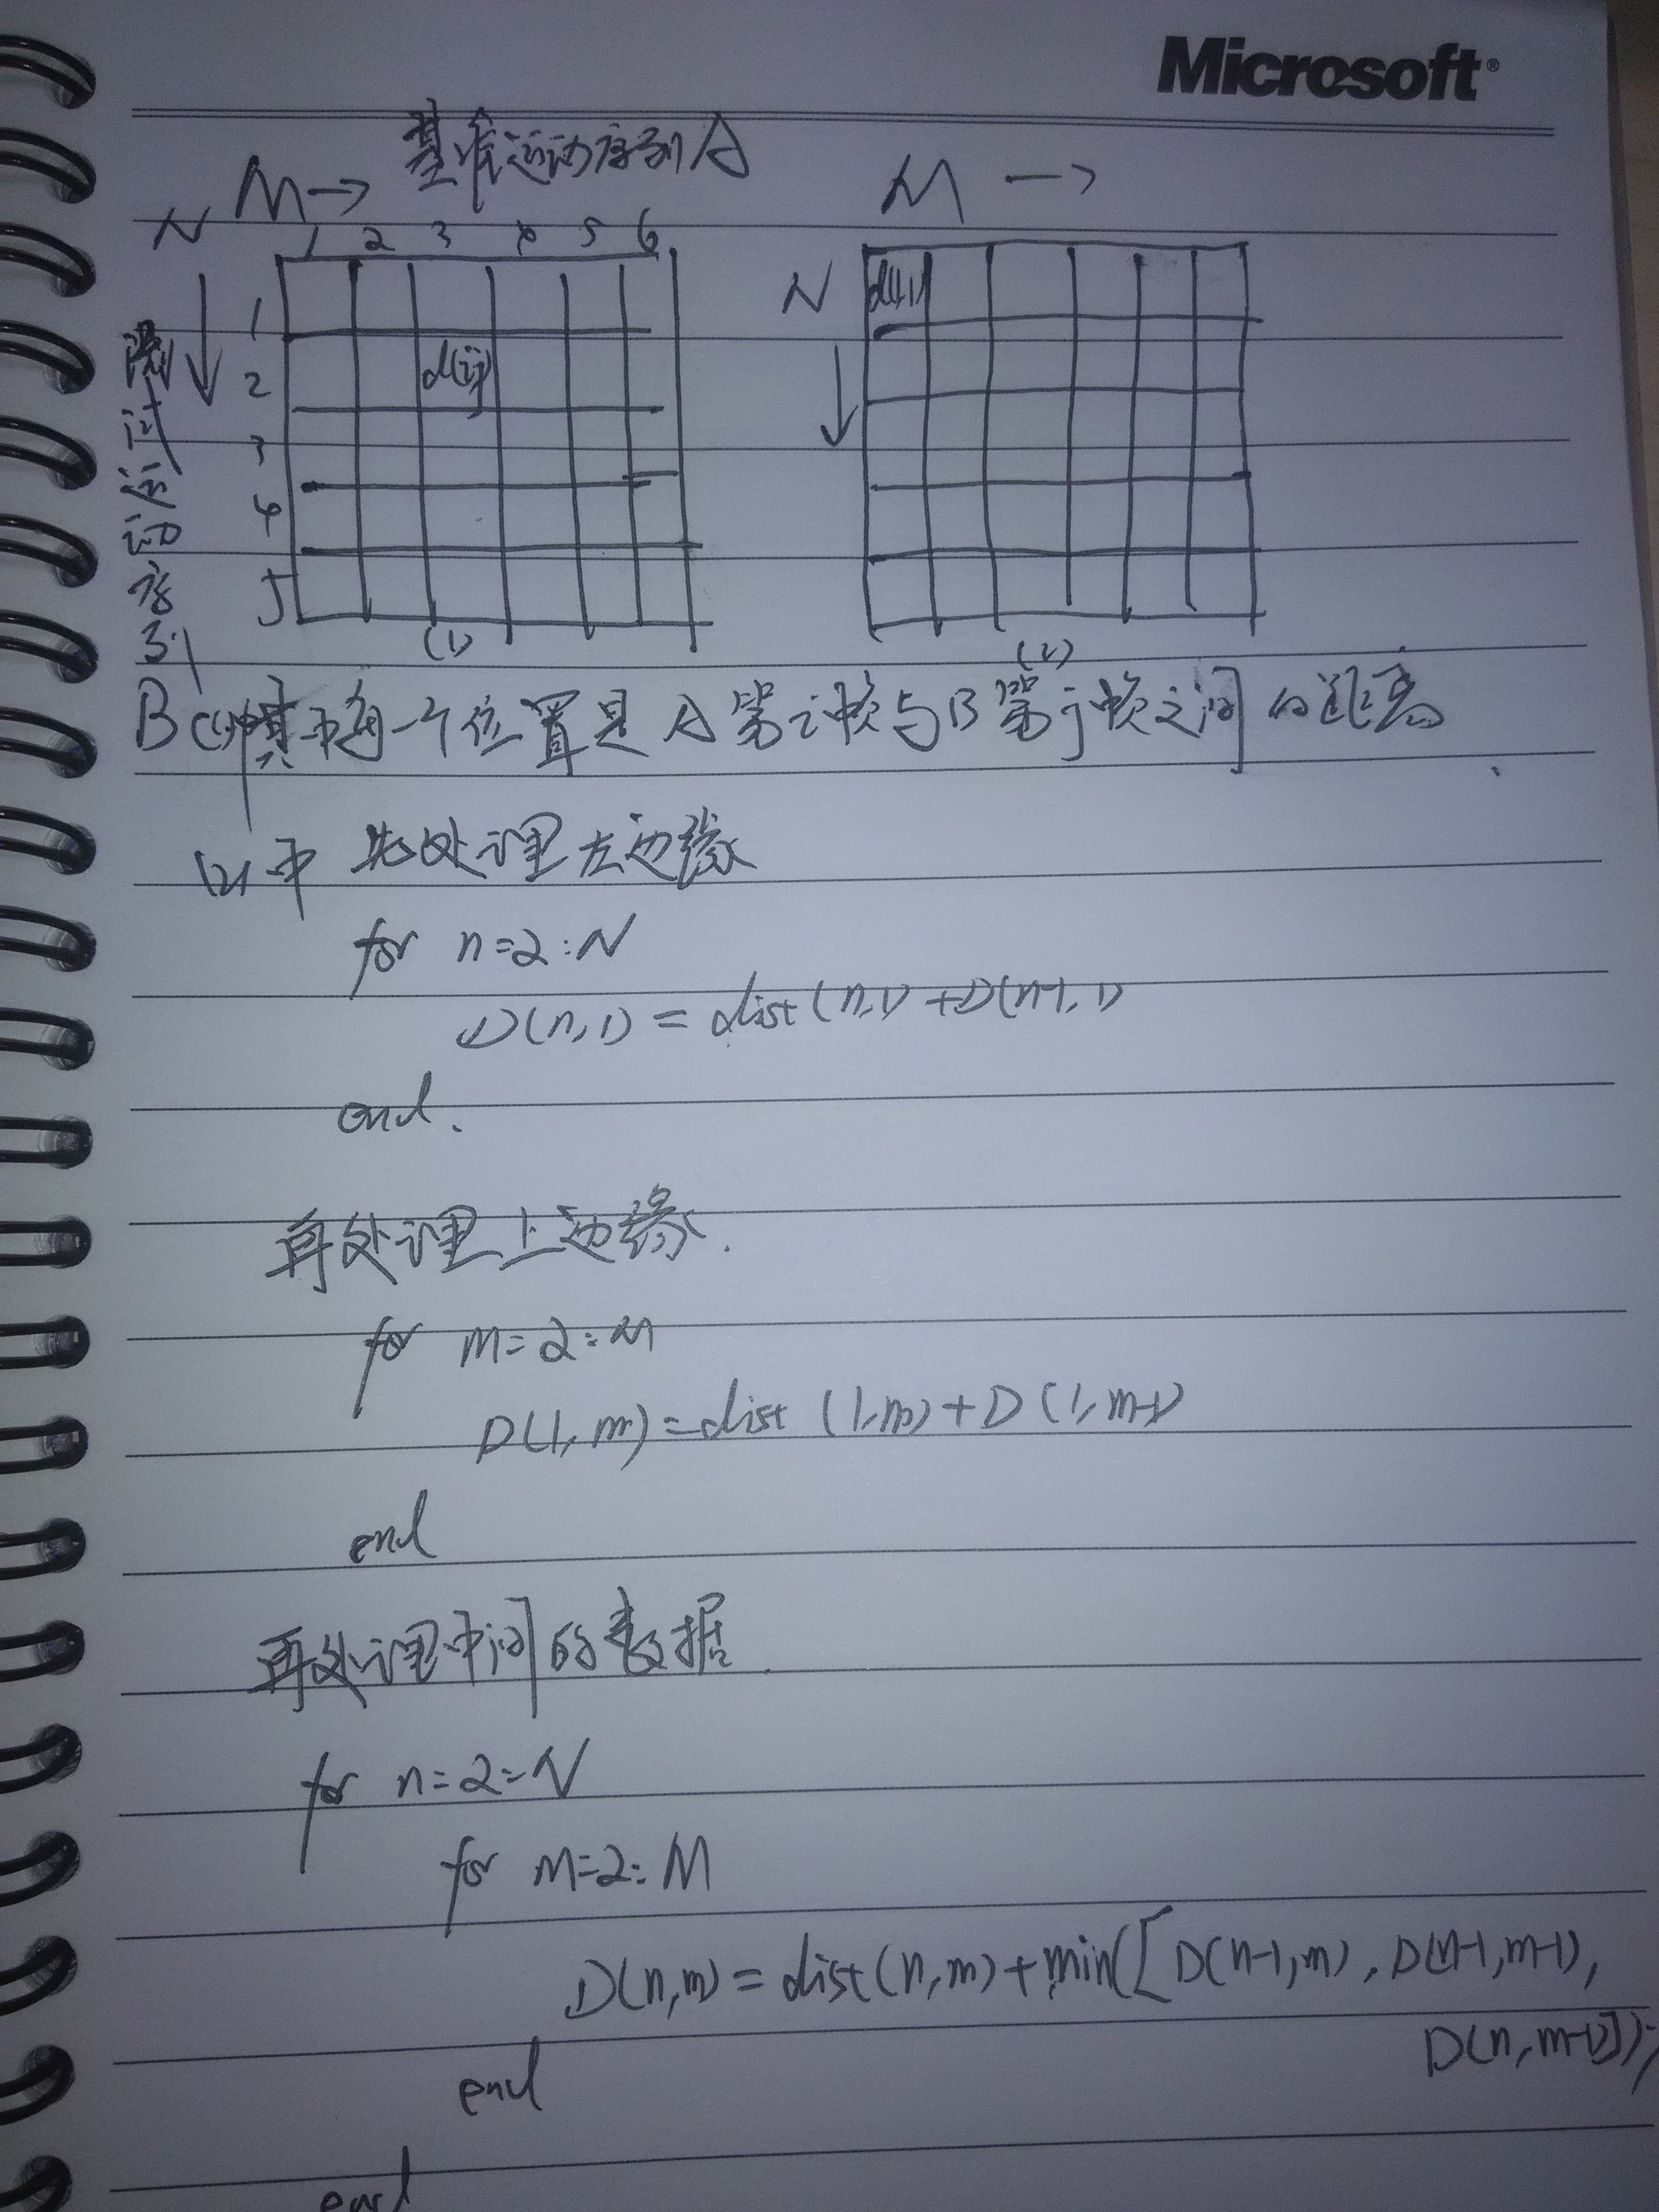 Microsoft®
基准运动序列A
M→
M →
N
1 2 3 4 5 6
N
d(1,1)
1
2
d(i,j)
3
4
5
测试运动序列
B
(1)
(2)
(1)中其中每一个位置是A第i帧与B第j帧之间的距离
(2)中 先处理左边缘
for n=2:N
D(n,1)=dist(n,1)+D(n-1,1)
end.
再处理上边缘.
for m=2:M
D(1,m)=dist(1,m)+D(1,m-1)
end
再处理中间的数据.
for n=2:N
for m=2:M
D(n,m)=dist(n,m)+min([D(n-1,m),D(n-1,m-1),
D(n,m-1)]);
end
end